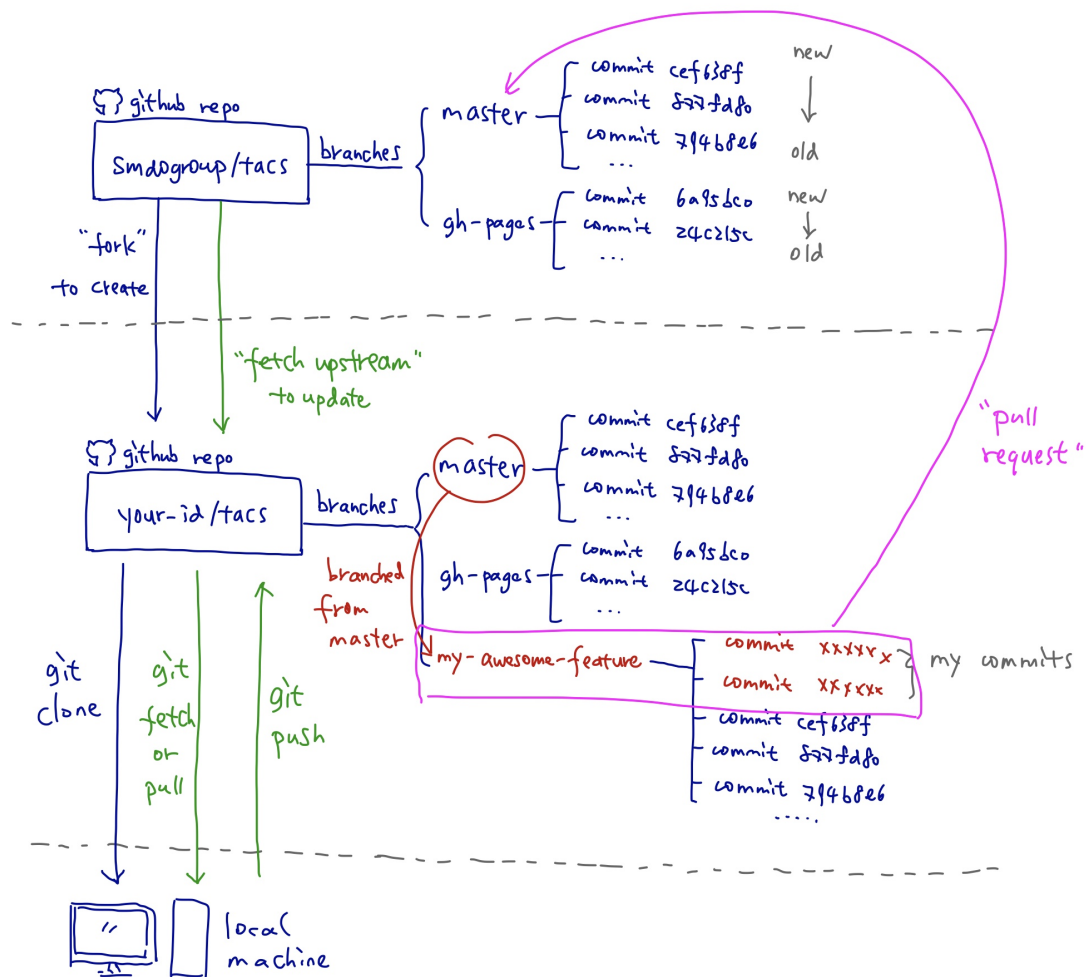 github repo
smdogroup/tacs
branches
master
commit cef638f
commit 877fd80
commit 794b8e6
...
new
old
gh-pages
commit 6a95bc0
commit 24c215c
...
new
old
"fork"
to create
"fetch upstream"
to update
"pull
request"
github repo
your-id/tacs
branches
master
commit cef638f
commit 877fd80
commit 794b8e6
...
gh-pages
commit 6a95bc0
commit 24c215c
...
branched
from
master
my-awesome-feature
commit xxxxxx
commit xxxxxx
commit cef638f
commit 877fd80
commit 794b8e6
.....
my commits
git
clone
git
fetch
or
pull
git
push
local
machine